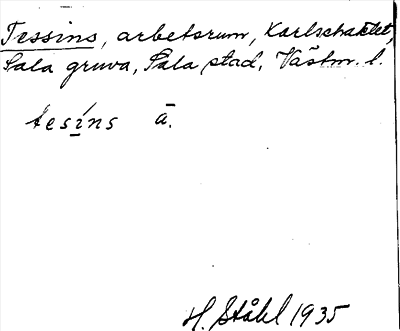 Tessins, arbetsrum, Karlschaktet,
Sala gruva, Sala stad, Västm. l.
tesíns ā.
H. Ståhl 1935